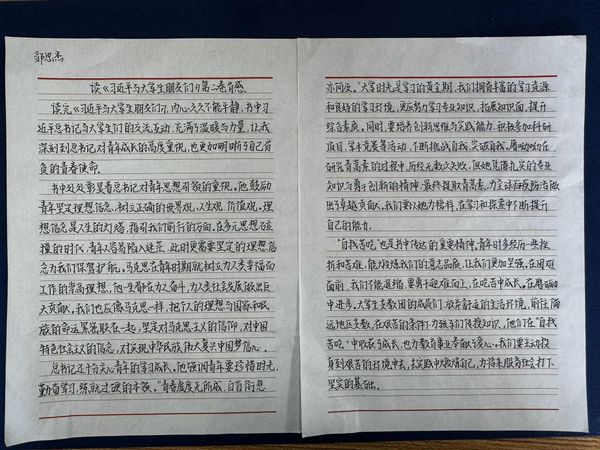 郭思杰
读《习近平与大学生朋友们》第二卷有感
读完《习近平与大学生朋友们》,内心久久不能平静,书中习
近平总书记与大学生们的交流互动,充满了温暖与力量,让我
深刻到总书记对青年成长的高度重视,也更加明晰了自己肩
负的青春使命。
书中处处彰显着总书记对青年思想引领的重视。他鼓励
青年坚定理想信念,树立正确的世界观、人生观、价值观。理
想信念是人生的灯塔,指引我们前行的方向,在多元思想碰
撞的时代,青年人容易陷入迷茫,此时更需要坚定的理想信
念为我们保驾护航。马克思在青年时期就树立为人类幸福而
工作的崇高理想,他一生都在为之奋斗,为人类社会发展做出巨
大贡献,我们也应像马克思一样,把个人的理想与国家和民
族的命运紧密联在一起,坚定对马克思主义的信仰,对中国
特色社会主义的信念,对实现中华民族伟大复兴中国梦信心。
总书记还十分关心青年的学习成长,他强调青年要珍惜时光,
勤奋学习,练就过硬的本领。"青春虚度无所成,白首衔悲
亦何及,"大学时光是学习的黄金期,我们拥有丰富的学习资源
和良好的学习环境,更应努力学习专业知识,拓展知识面,提升
综合素质。同时,要培养创新思维与实践能力。积极参加科研
项目、学术竞赛等活动,不断挑战自我,突破自我,屠呦呦在
研究青蒿素的过程中,历经无数次失败,但她凭借扎实的专业
知识与勇于创新的精神,最终提取青蒿素,为全球疟疾防治做
出了卓越贡献,我们要以她为榜样,在学习和探索中不断提升
自己的能力。
"自找苦吃"也是书中传达的重要精神,青年时多经历一些挫
折和苦难,能够磨炼我们的意志品质,让我们更加坚强。在困难
面前,我们不能退缩,要勇于迎难而上,在吃苦中成长,在磨砺
中进步,大学生支教团的成员们,放弃舒适的生活环境,前往偏
远地区支教,在艰苦的条件下为孩子们传授知识,他们在"自找
苦吃"中收获与成长,也为教育事业奉献了爱心。我们要主动投
身到艰苦的环境中去,去实践中锻炼自己,为将来服务社会打下
坚实的基础。